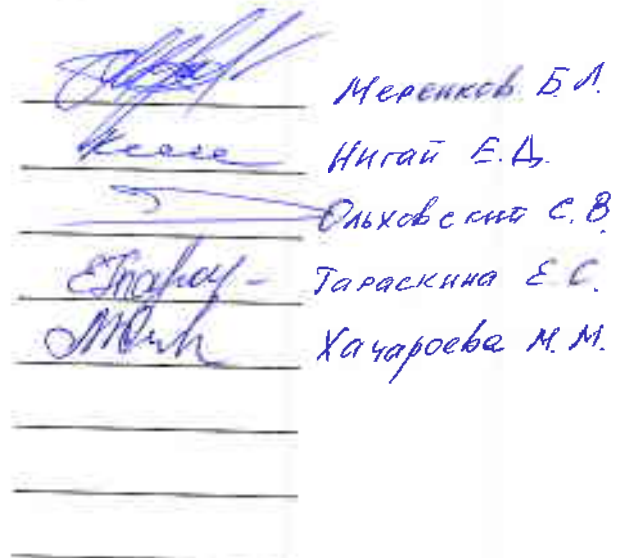 Меренков Б.Л.
Нигай Е.Д.
Ольховский С.В.
Тараскина Е.С.
Хачароева М.М.